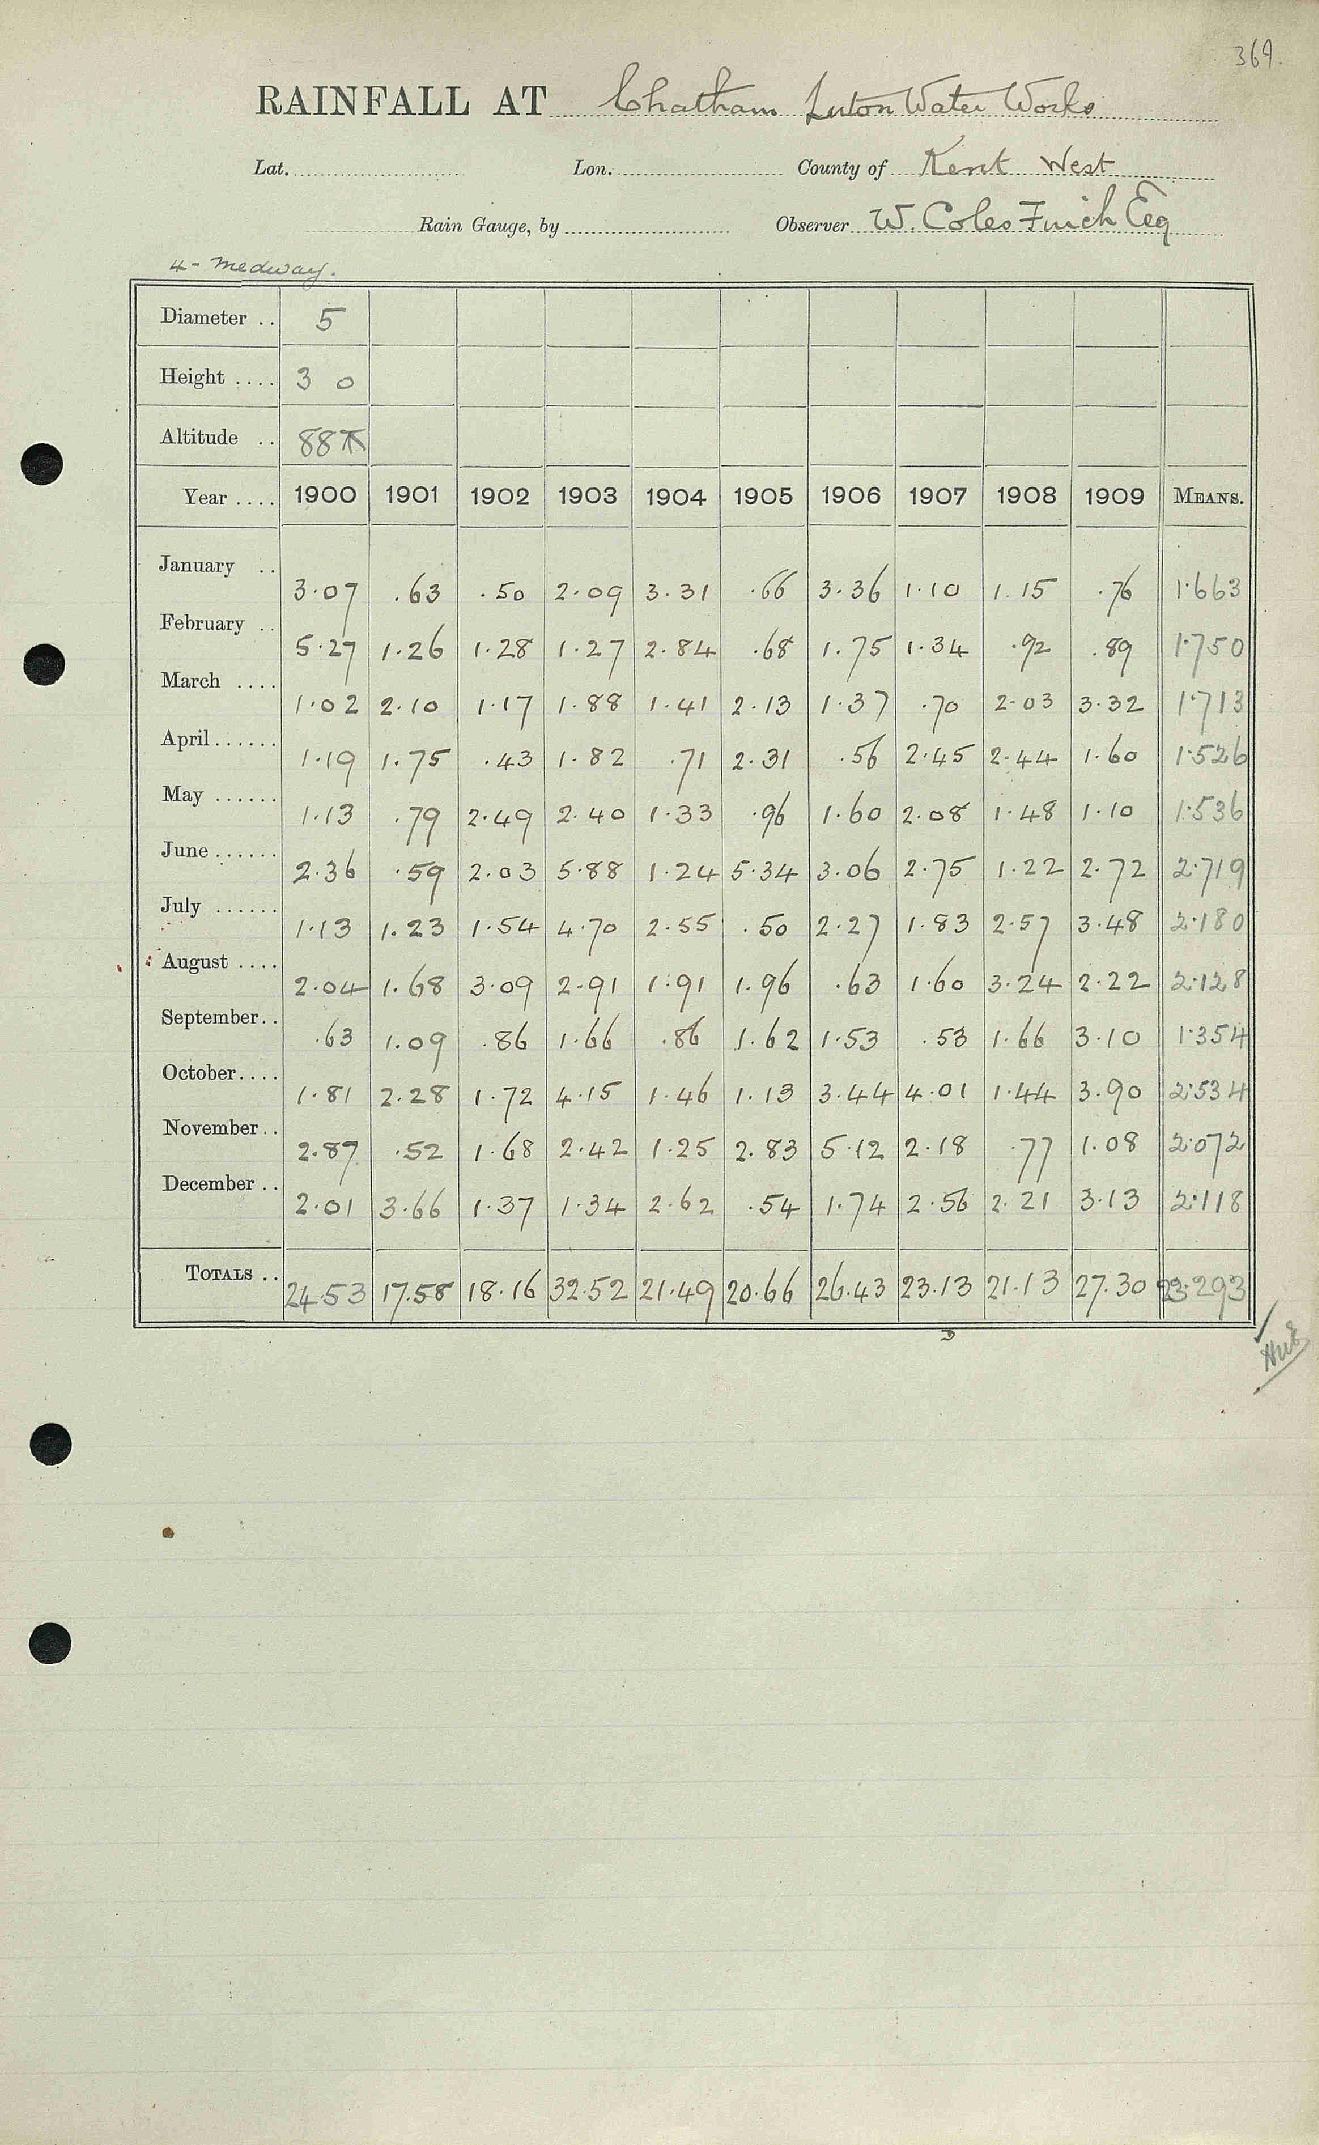 369.
RAINFALL AT Chatham Luton Water Works
Lat. Lon. County of Kent West
Rain Gauge, by Observer W. Coles Finch Esq
4 - Medway.
Diameter .. 5
Height .... 3 0
Altitude .. 88
Year .... 1900 1901 1902 1903 1904 1905 1906 1907 1908 1909 MEANS.
January .. 3·07 .63 ·50 2·09 3·31 ·66 3·36 1·10 1·15 ·76 1·663
February .. 5·27 1·26 1·28 1·27 2·84 ·68 1·75 1·34 ·92 ·89 1·750
March .... 1·02 2·10 1·17 1·88 1·41 2·13 1·37 ·70 2·03 3·32 1·713
April...... 1·19 1·75 ·43 1·82 ·71 2·31 ·56 2·45 2·44 1·60 1·526
May ...... 1·13 ·79 2·49 2·40 1·33 ·96 1·60 2·08 1·48 1·10 1·536
June ...... 2·36 ·59 2·03 5·88 1·24 5·34 3·06 2·75 1·22 2·72 2·719
July ...... 1·13 1·23 1·54 4·70 2·55 ·50 2·27 1·83 2·57 3·48 2·180
August .... 2·04 1·68 3·09 2·91 1·91 1·96 ·63 1·60 3·24 2·22 2·128
September.. ·63 1·09 ·86 1·66 ·86 1·62 1·53 ·53 1·66 3·10 1·354
October.... 1·81 2·28 1·72 4·15 1·46 1·13 3·44 4·01 1·44 3·90 2·534
November.. 2·87 ·52 1·68 2·42 1·25 2·83 5·12 2·18 ·77 1·08 2·072
December .. 2·01 3·66 1·37 1·34 2·62 ·54 1·74 2·56 2·21 3·13 2·118
TOTALS .. 24·53 17·58 18·16 32·52 21·49 20·66 26·43 23·13 21·13 27·30 23·293